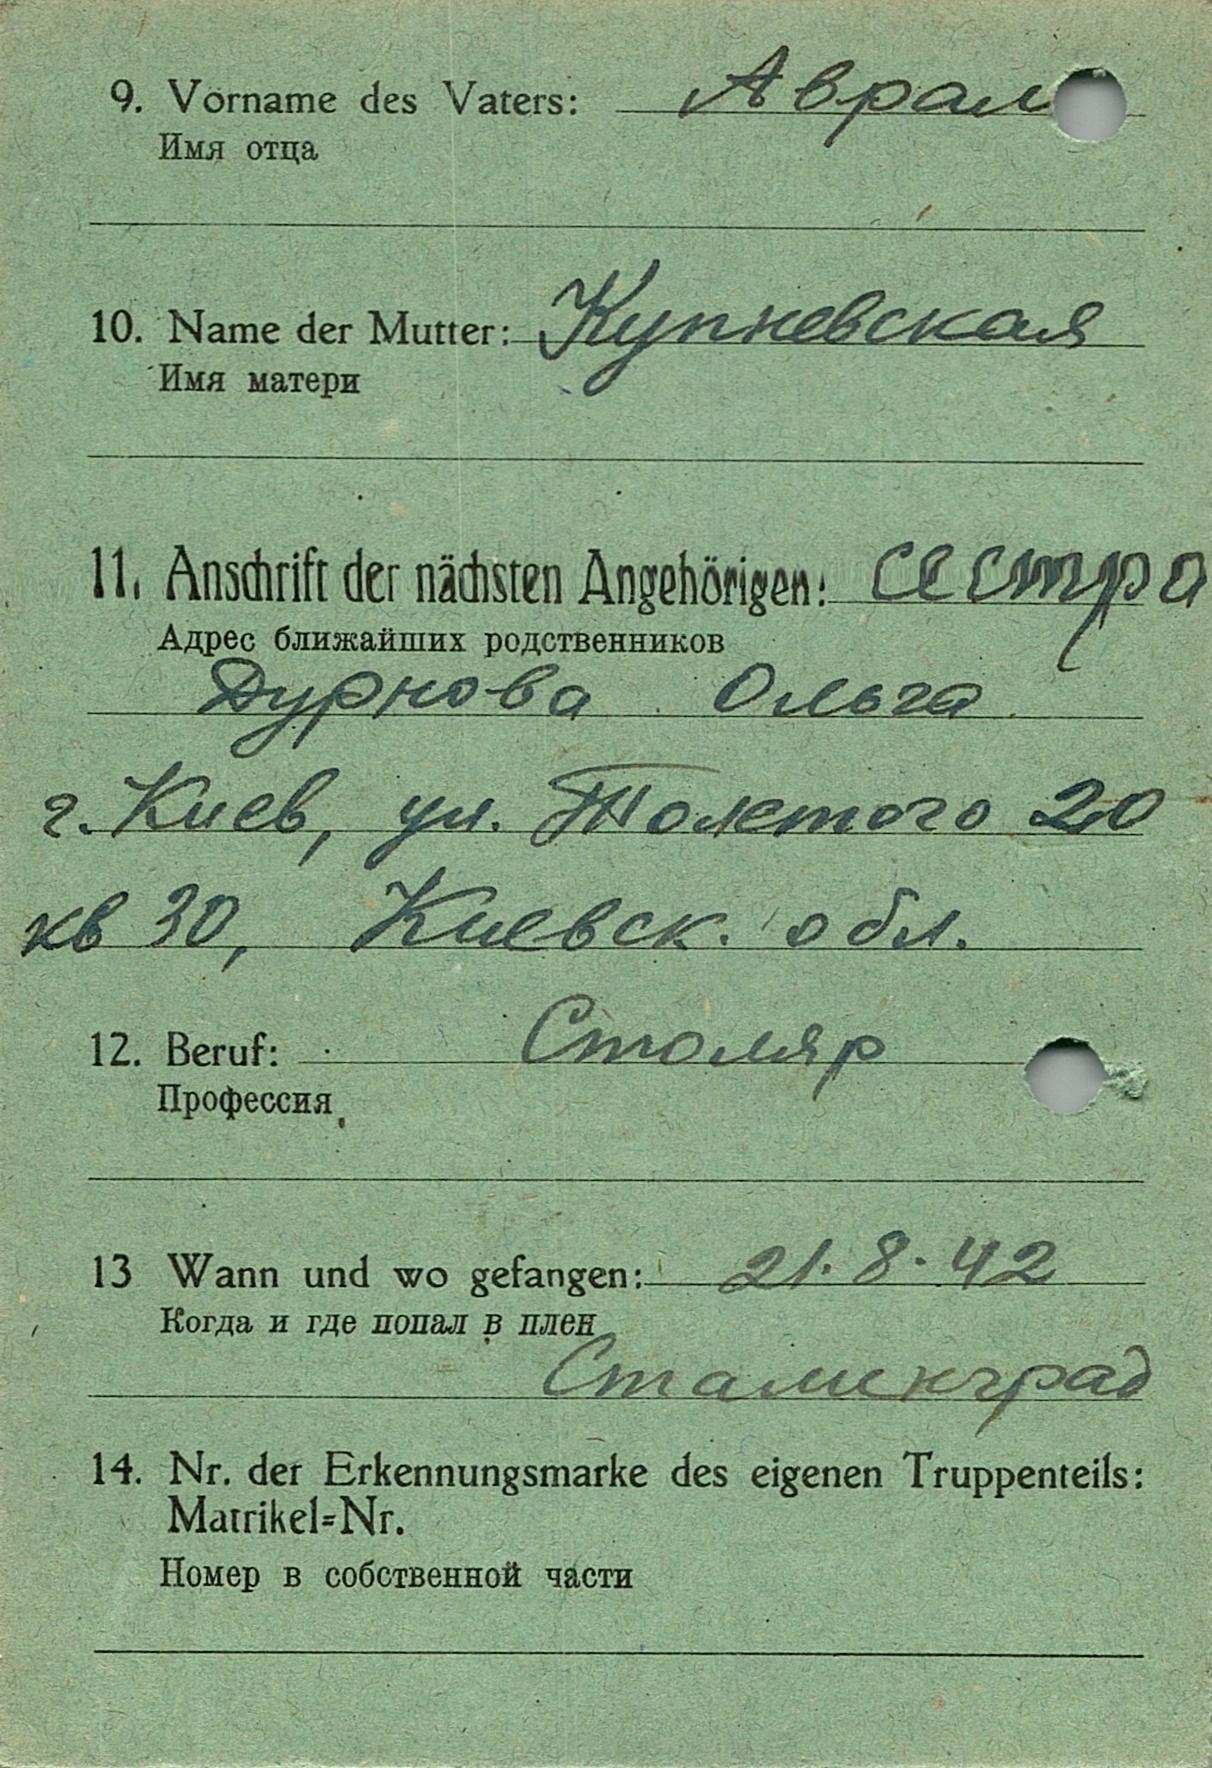 9. Vorname des Vaters: Аврам
Имя отца
10. Name der Mutter: Купневская
Имя матери
11. Anschrift der nächsten Angehörigen: сестра
Адрес ближайших родственников
Дурнова Ольга
г. Киев, ул. Толстого 20
кв 30, Киевск. обл.
12. Beruf: Столяр
Профессия
13 Wann und wo gefangen: 21.8.42
Когда и где попал в плен
Сталинград
14. Nr. der Erkennungsmarke des eigenen Truppenteils:
Matrikel=Nr.
Номер в собственной части